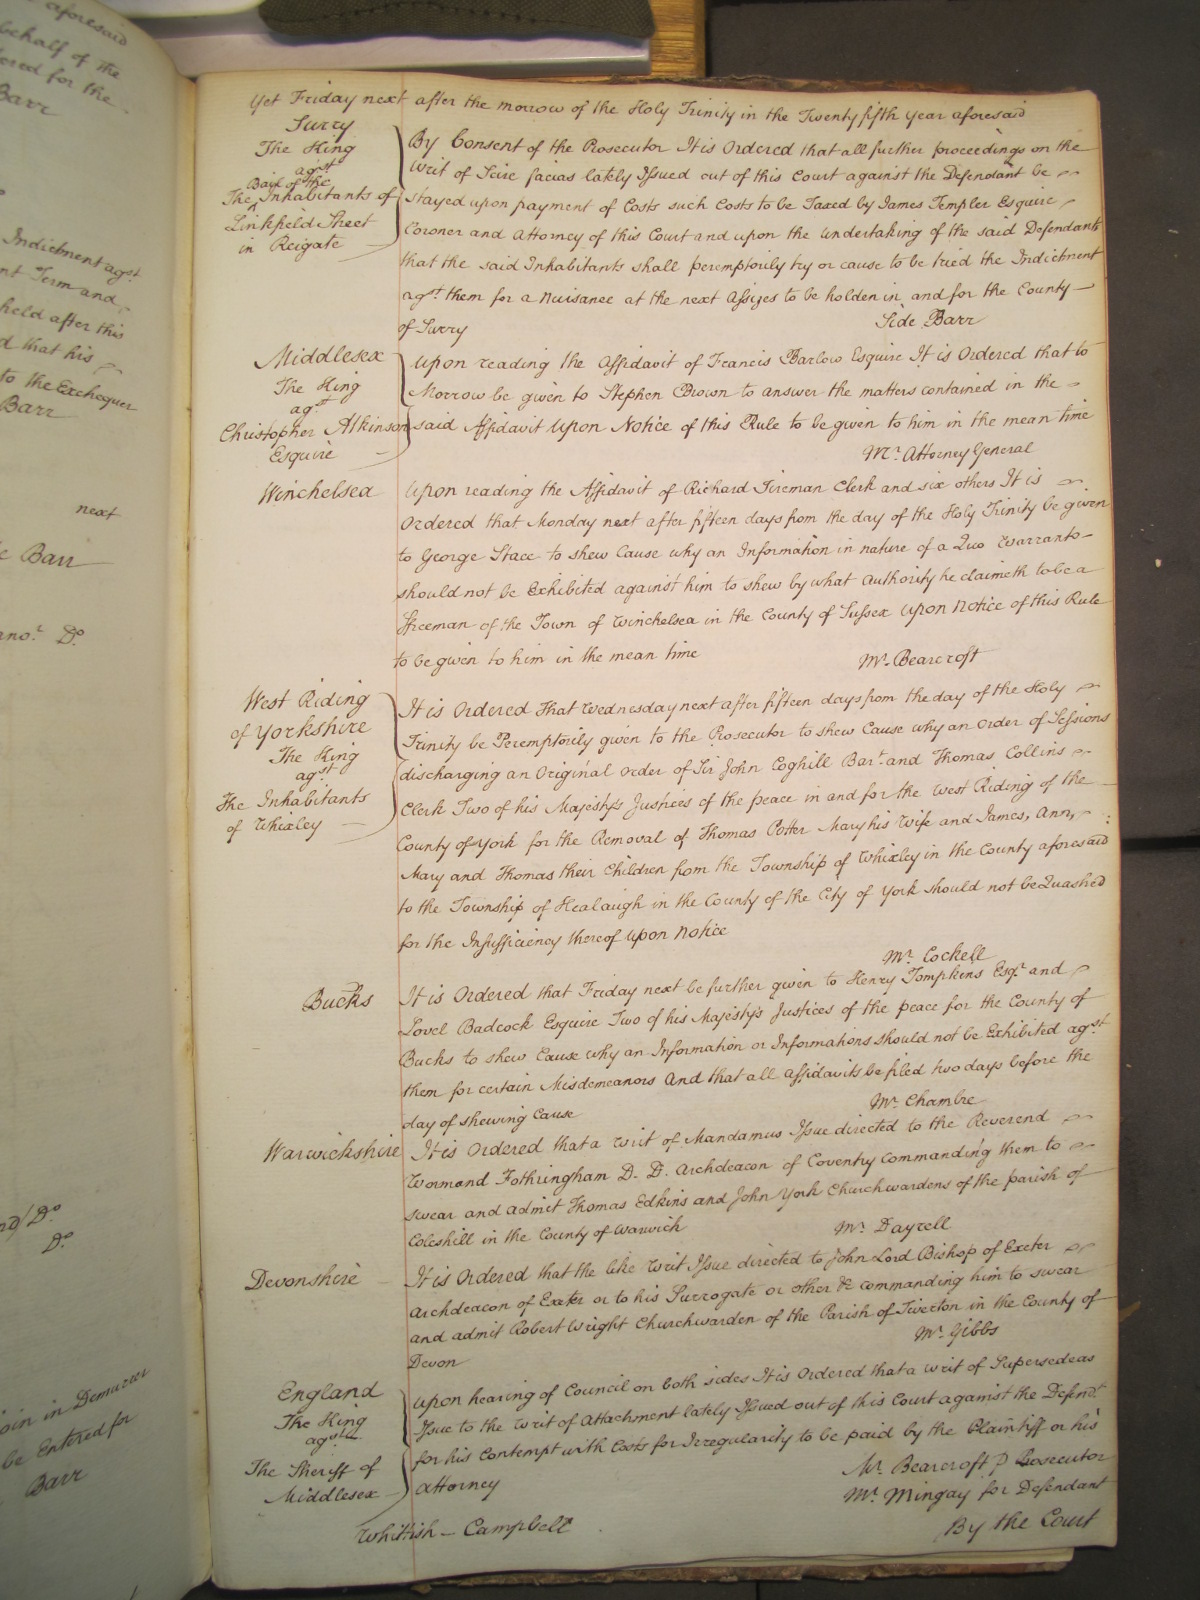 aforesaid
behalf of the
for the
Barr
Indictment agst
Term and
held after this
that his
to the Exchequer
Barr
next
Barr
Do
Do
Do
join in Demurrer
be Entered for
Barr
Yet Friday next after the morrow of the Holy Trinity in the Twenty fifth year aforesaid
Surry
The King
agst
Bail of the
The Inhabitants of
Linkfield Street
in Reigate
By Consent of the Prosecutor It is Ordered that all further proceedings on the
Writ of Scire facias lately Issued out of this Court against the Defendant be
stayed upon payment of Costs such Costs to be Taxed by James Templer Esquire
Coroner and Attorney of this Court and upon the Undertaking of the said Defendants
that the said Inhabitants shall peremptorily try or cause to be tried the Indictment
agst them for a Nuisance at the next Assizes to be holden in and for the County
of Surry
Side Barr
Middlesex
The King
agst
Christopher Atkinson
Esquire
Upon reading the Affidavit of Francis Barlow Esquire It is Ordered that to
Morrow be given to Stephen Brown to answer the matters contained in the
said Affidavit Upon Notice of this Rule to be given to him in the mean time
Mr. Attorney General
Winchelsea
Upon reading the Affidavit of Richard Tireman Clerk and six others It is
Ordered that Monday next after fifteen days from the day of the Holy Trinity be given
to George Stace to shew Cause why an Information in nature of a Quo Warranto
should not be Exhibited against him to shew by what Authority he claimeth to be a
Freeman of the Town of Winchelsea in the County of Sussex Upon Notice of this Rule
to be given to him in the mean time
Mr. Bearcroft
West Riding
of Yorkshire
The King
agst
The Inhabitants
of Whixley
It is Ordered That Wednesday next after fifteen days from the day of the Holy
Trinity be Peremptorily given to the Prosecutor to shew Cause why an Order of Sessions
discharging an Original Order of Sir John Coghill Bart. and Thomas Collins
Clerk Two of his Majestys Justices of the peace in and for the West Riding of the
County of York for the Removal of Thomas Potter Mary his Wife and James, Ann,
Mary and Thomas their Children from the Township of Whixley in the County aforesaid
to the Township of Healaugh in the County of the City of York should not be Quashed
for the Insufficiency thereof Upon Notice
Mr. Cockell
Bucks
It is Ordered that Friday next be further given to Henry Tompkins Esqr. and
Lovel Badcock Esquire Two of his Majesty's Justices of the peace for the County of
Bucks to shew Cause why an Information or Informations should not be Exhibited agst
them for certain Misdemeanors And that all Affidavits be filed two days before the
day of shewing Cause
Mr. Chambre
Warwickshire
It is Ordered that a Writ of Mandamus Issue directed to the Reverend
Wormand Fothringham D. D. Archdeacon of Coventry commanding them to
swear and admit Thomas Edkins and John York Churchwardens of the parish of
Coleshill in the County of Warwick
Mr. Dayrell
Devonshire
It is Ordered that the like Writ Issue directed to John Lord Bishop of Exeter
Archdeacon of Exeter or to his Surrogate or other &c commanding him to swear
and admit Robert Wright Churchwarden of the Parish of Tiverton in the County of
Devon
Mr. Gibbs
England
The King
agst
The Sheriff of
Middlesex
Upon hearing of Council on both sides It is Ordered that a Writ of Supersedeas
Issue to the Writ of Attachment lately Issued out of this Court against the Defendt.
for his Contempt with Costs for Irregularity to be paid by the Plaintiff or his
Attorney
Mr. Bearcroft p Prosecutor
Mr. Mingay for Defendant
Whittish - Campbell
By the Court